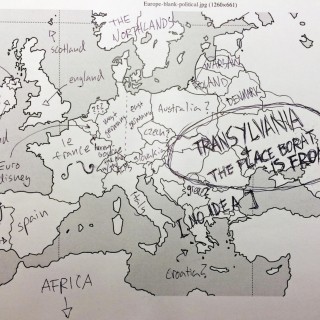 Europe-blank-political.jpg (1260x661)
THE
NORTHLANDS
scotland
england
WARSAW
POLAND
DENMARK
west
germany
east
germany
Australia?
TRANSYLVANIA
+
THE PLACE BORAT
IS FROM
le
france
czech
slovakia
Euro
disney
spain
this
greece
[NO IDEA]
Croatia?
AFRICA